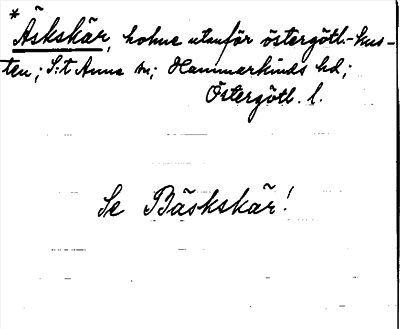 *
Äskskär, holme utanför östergötl.-kus-
ten; S:t Anna sn; Hammarkinds hd;
Östergötl. l.
Se Bäskskär!